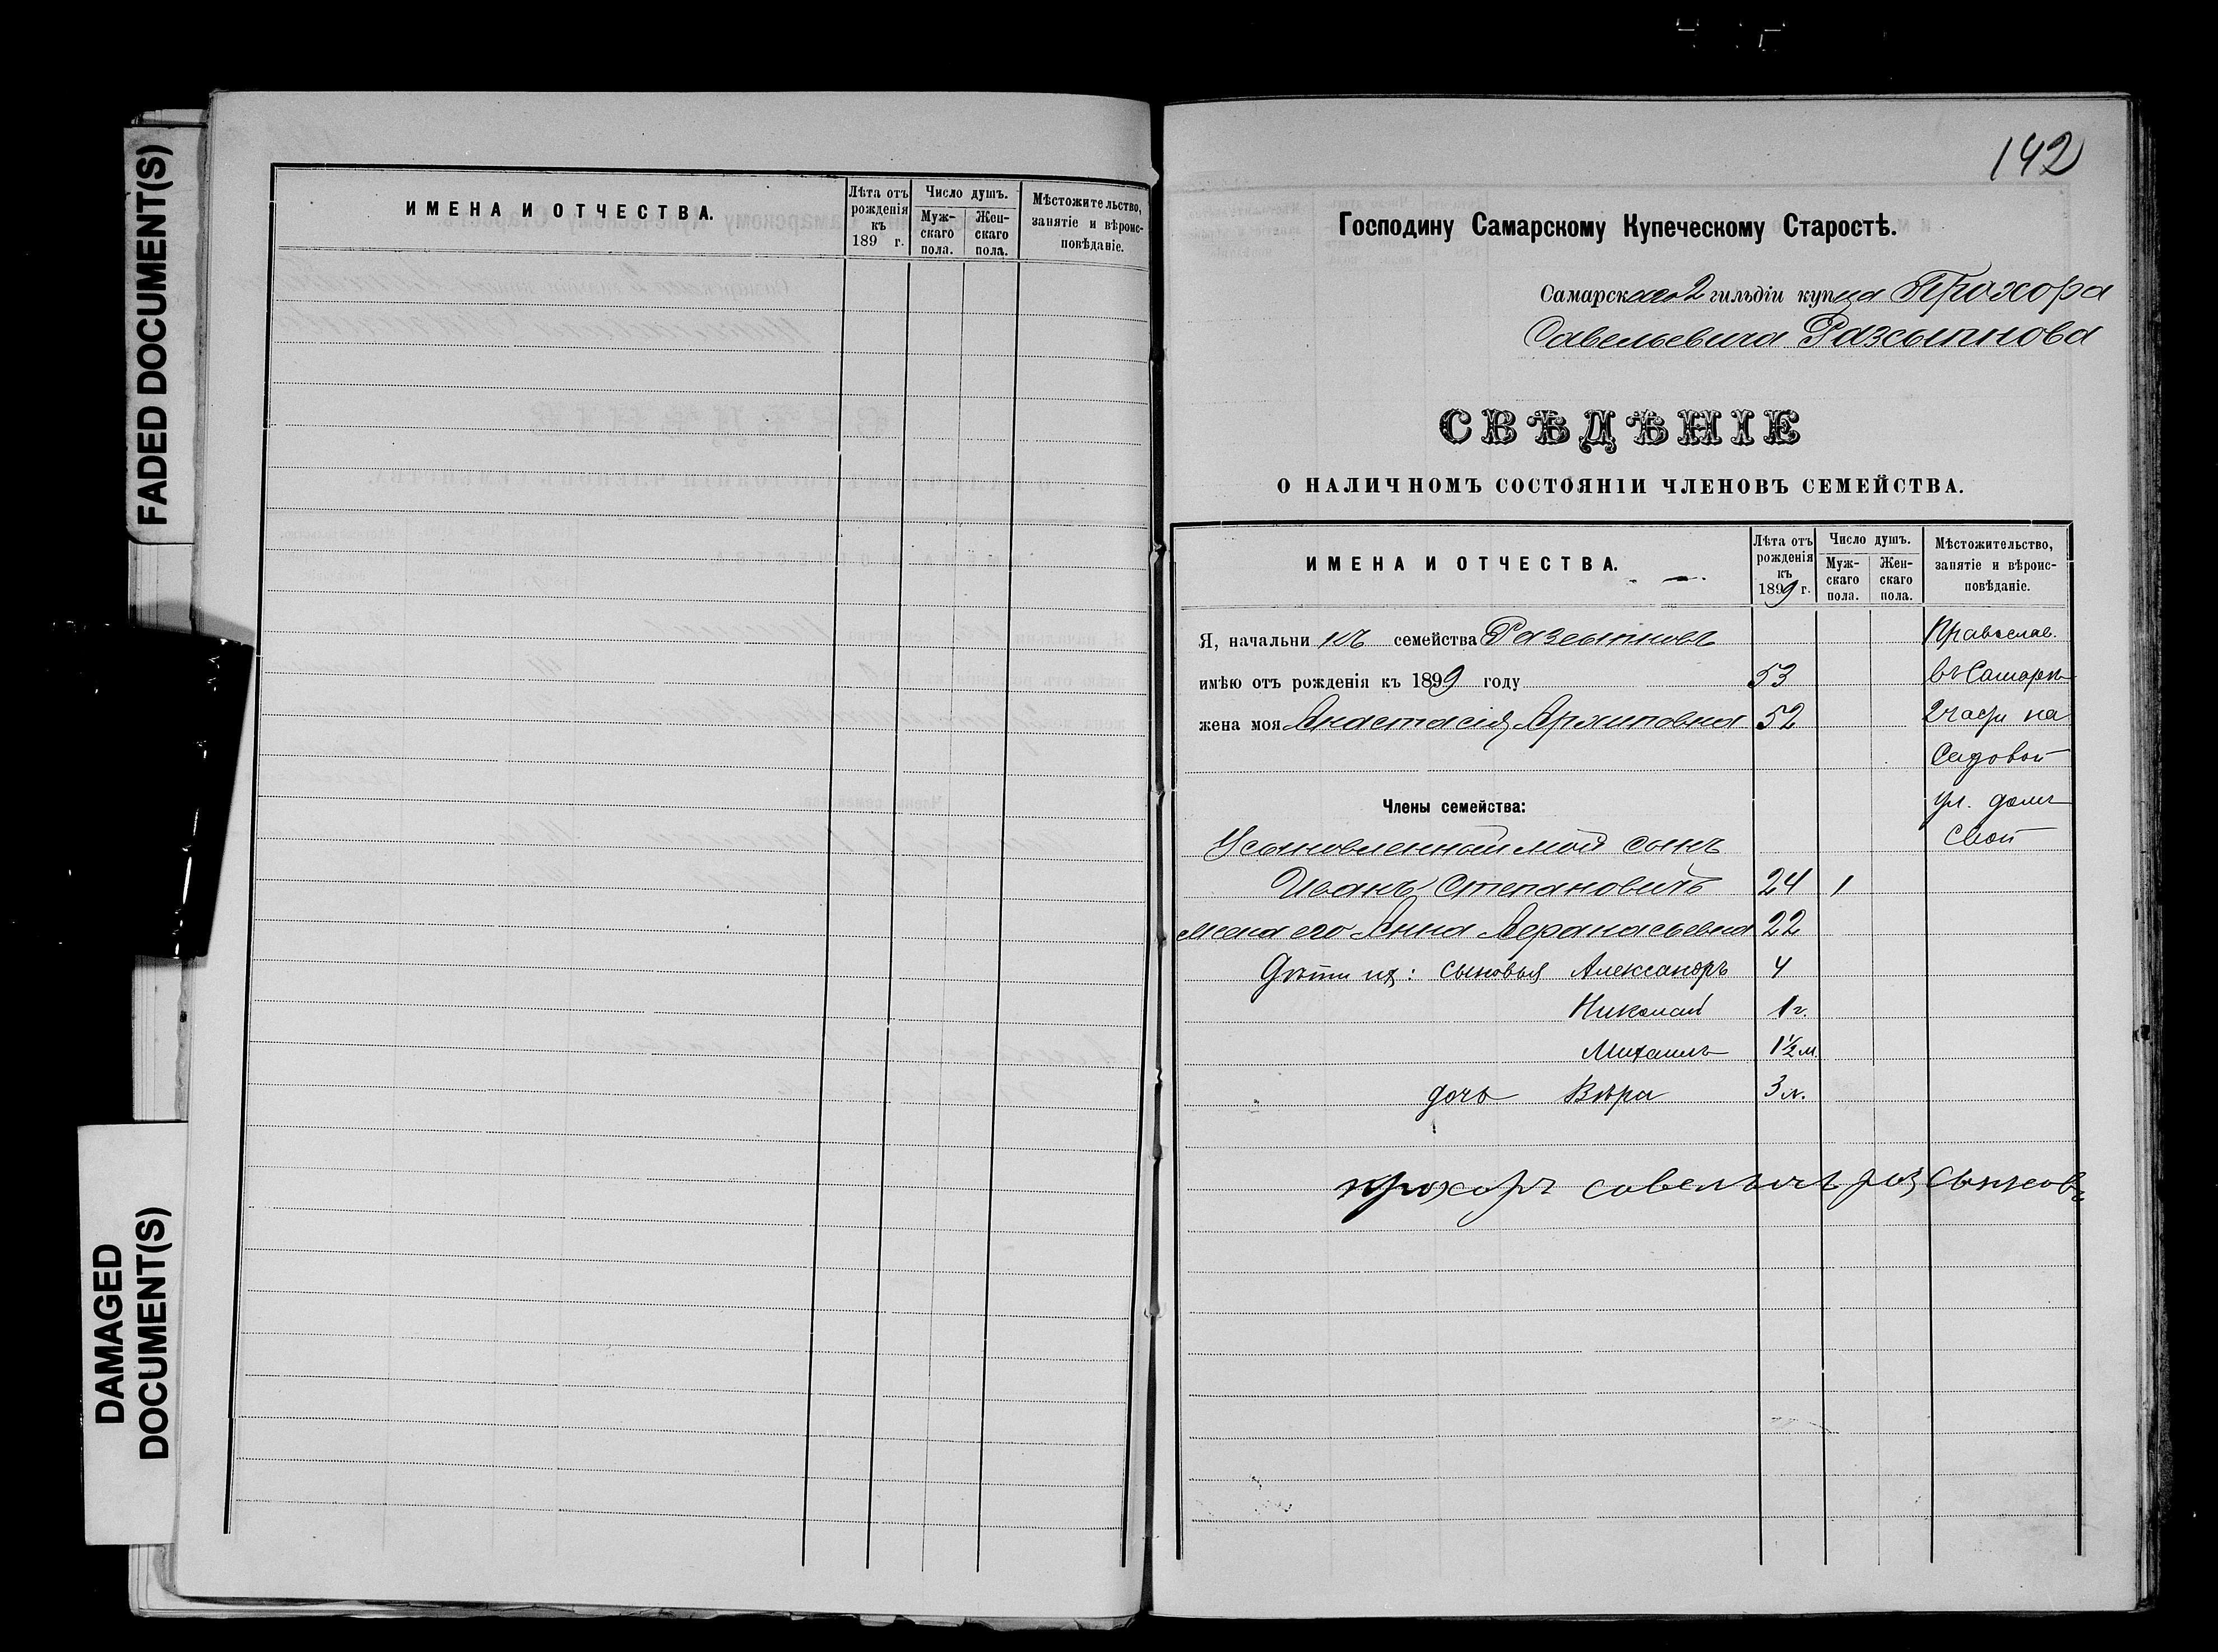 FADED DOCUMENT(S)
DAMAGED
DOCUMENT(S)
ИМЕНА И ОТЧЕСТВА.
Лѣта отъ рожденія къ 189 г.
Число душъ.
Мужскаго пола.
Женскаго пола.
Мѣстожительство, занятіе и вѣроисповѣданіе.
142
Господину Самарскому Купеческому Старостѣ.
Самарскаго 2 гильдіи купца Прохора
Савельевича Разсыпнова
СВѢДѢНІЕ
О НАЛИЧНОМЪ СОСТОЯНІИ ЧЛЕНОВЪ СЕМЕЙСТВА.
ИМЕНА И ОТЧЕСТВА.
Лѣта отъ рожденія къ 1899 г.
Число душъ.
Мужскаго пола.
Женскаго пола.
Мѣстожительство, занятіе и вѣроисповѣданіе.
Я, начальникъ семейства Разсыпновъ Православ.
имѣю отъ рожденія къ 1899 году 53 въ Самарѣ
жена моя Анастасія Архиповна 52 2 части на
Садовой
Члены семейства: ул. домъ
Усыновленный мой сынъ свой
Иванъ Степановичъ 24 1
жена его Анна Афанасьевна 22
Дѣти их: сыновья Александръ 4
Николай 1 г.
Михаилъ 1½ м
дочь Вѣра 3 л.
прохоръ савелъичъ розсыпновъ